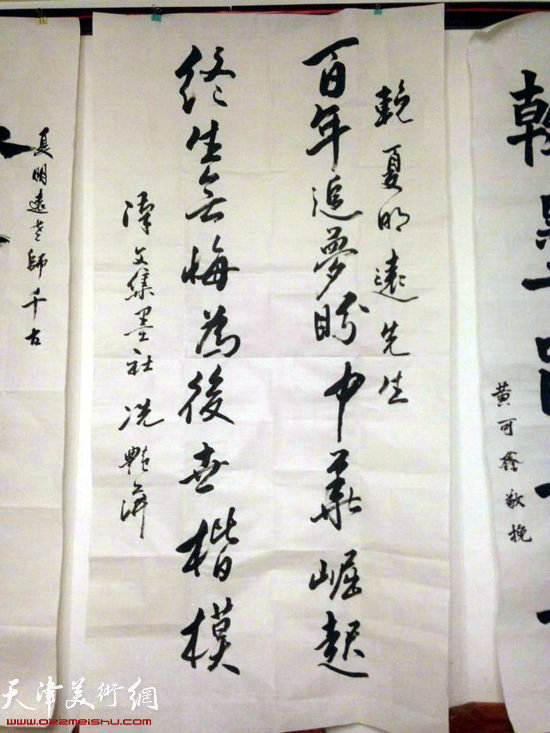 翰墨
黄可鑫敬挽
輓夏明遠先生
百年追夢盼中華崛起
终生無悔為後世楷模
津文集墨社 冼艷萍
夏明遠老師千古
天津美術網
www.022meishu.com